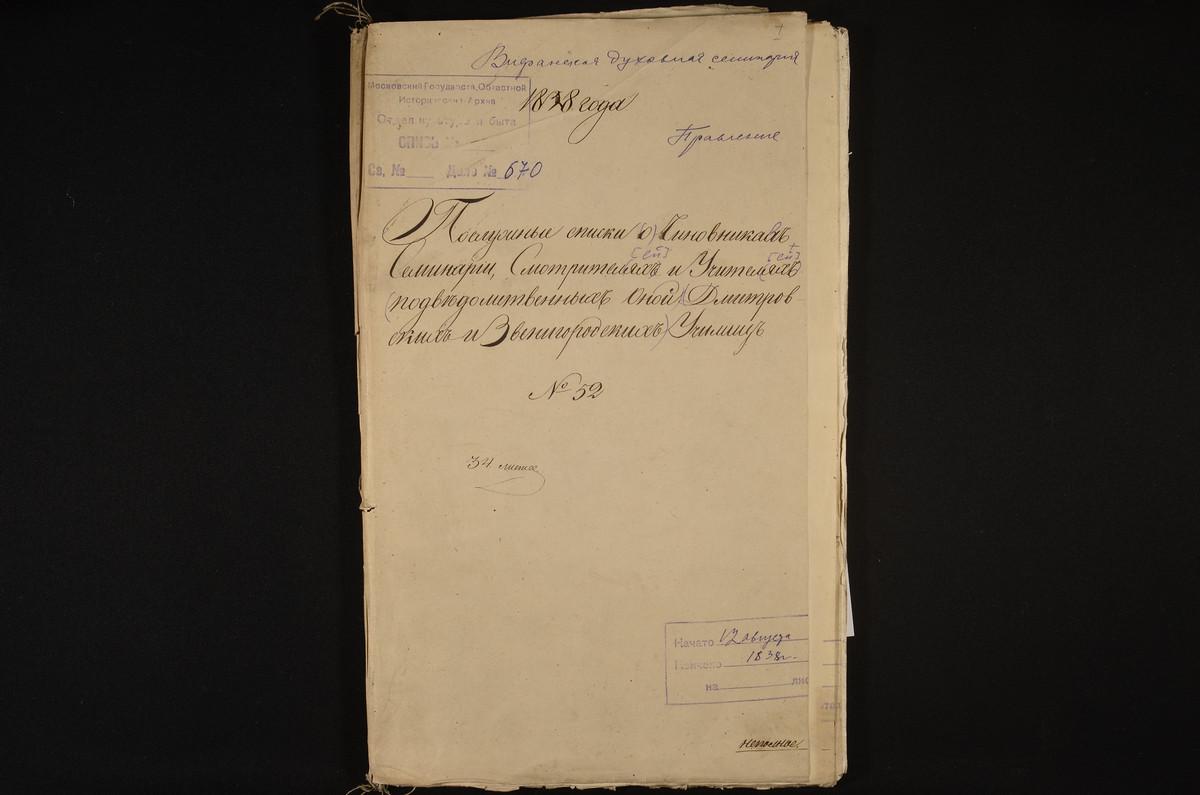 1
Вифанская духовная семинария
Московский Государств. Областной
Историческ. Архив
Отдел культуры и быта
ОПИСЬ №
Св. № Дело № 670
1838 года
Правление
Послужные списки (о) Чиновниковахъ
Семинаріи, Смотрителяхъ [ей] и Учителяхъ [ей]
(подвѣдомственныхъ оной) (Дмитров-
скихъ и Звенигородскихъ) Училищъ
№ 52
34 листа
Начато 12 августа
Кончено 1838 г.
на лис
неполное